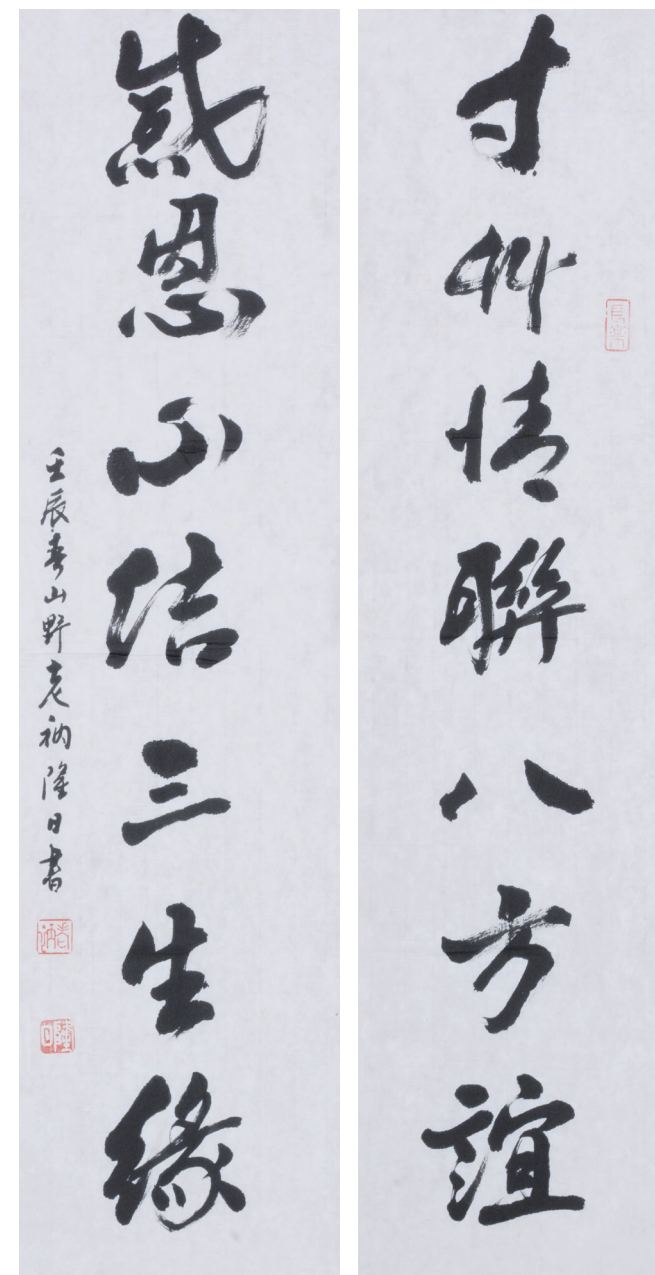 寸艸情聯八方誼
感恩心結三生緣
壬辰春山野老衲隆日書
老衲
隆日